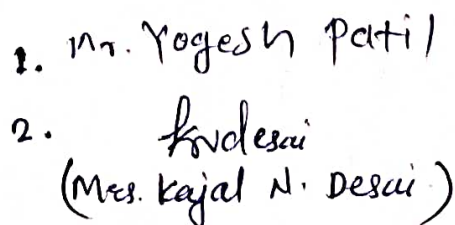 1. Mr. Yogesh Patil
2. kndesai
(Mrs. Kajal N. Desai)